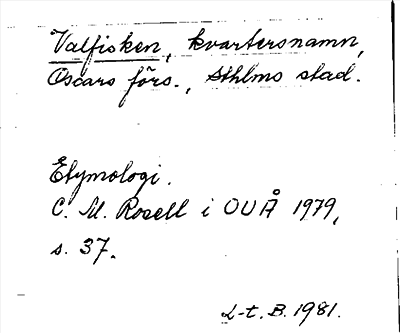 Valfisken, kvartersnamn,
Oscars förs., Sthlms stad.
Etymologi.
C. M. Rosell i OUÅ 1979,
s. 37.
L-t. B. 1981.